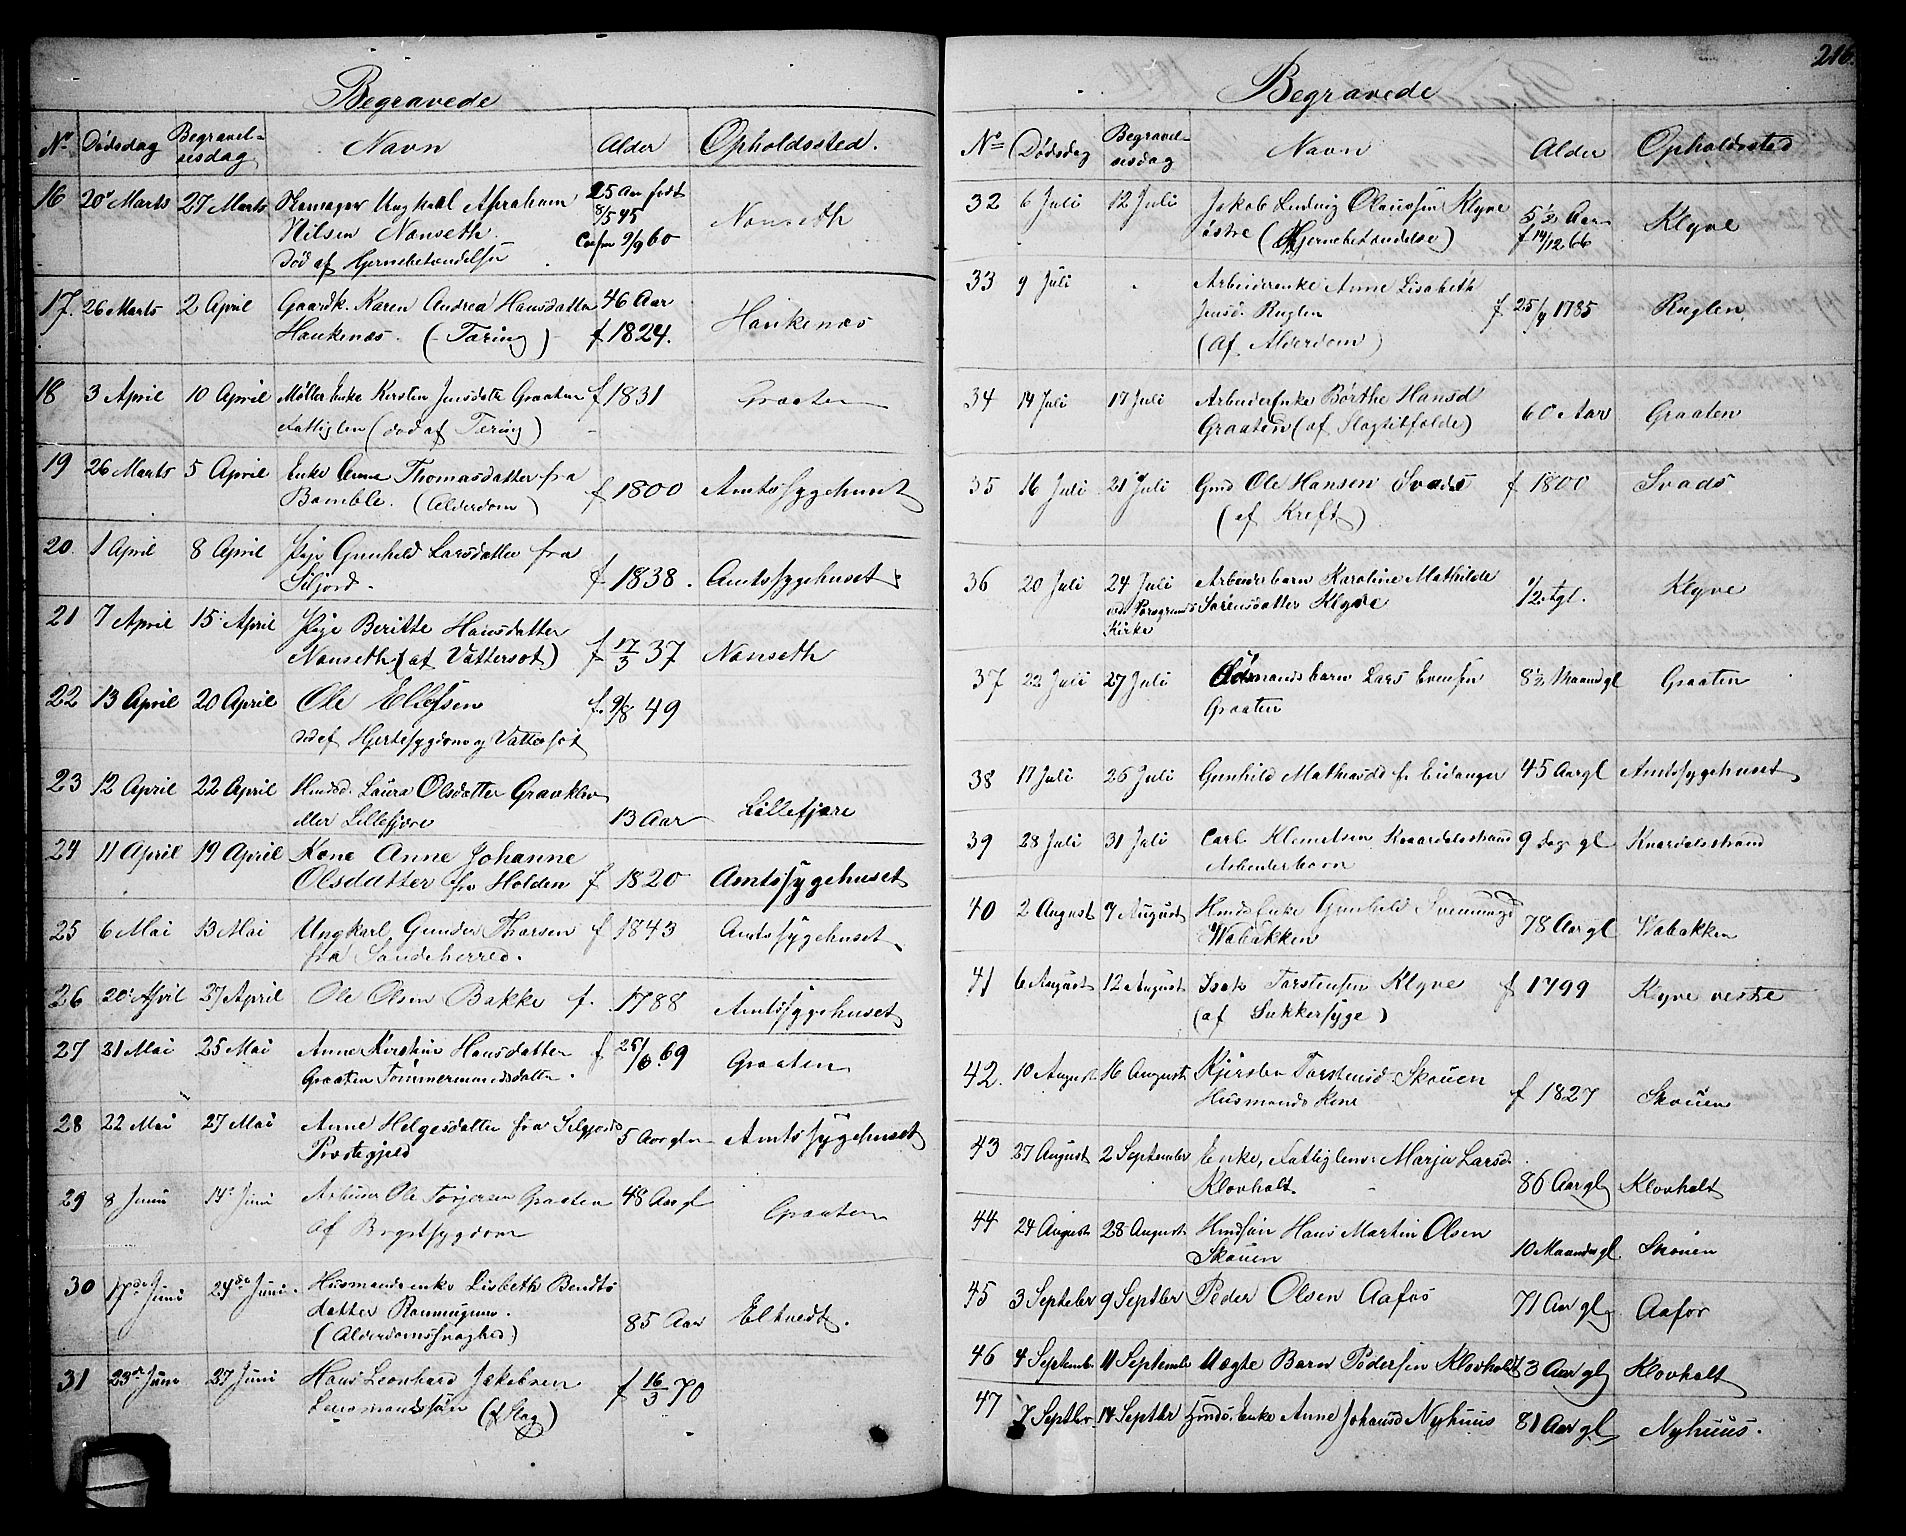 Begravede
No Dødsdag Begravel-sesdag Navn Alder Opholdssted.
16 20de Marts 27 Marts Skomager Ungkarl Abraham 25 Aar født 8/5 45 Nanseth
Nilsen Nanseth. Conf 9/9 60
død af Hjernebetændelse
17. 26 Marts 2 April Gaardk. Karen Andrea Hansdatter 46 Aar Haukenæs
Haukenæs. (Tæring) f 1824.
18 3 April 10 April Møller Enke Kirsten Jensdatt Graaten f 1831 Graaten
Fattiglem (død af Tæring)
19 26 Marts 5 April Enke Anne Thomasdatter fra f 1800 Amtssygehuset
Bamble. (Alderdom)
20. 1 April 8 April Pige Gunhild Larsdatter fra f 1838. Amtssygehuset
Siljord.
21 7 April 15 April Pige Beritte Hansdatter f 17/3 37 Nanseth
Nanseth (af Vattersot)
22 13 April 20 April Ole Ellefsen f. 9/8 49
død af Hjertesygdom og Vattersot
23 12 April 22 April Huusd. Laura Olsdatter Gravklev 13 Aar Lillefjære
eller Lillefjære
24 11 April 19 April Kone Anne Johanne f 1820 Amtssygehuset
Olsdatter fra Holden
25 6 Mai 13 Mai Ungkarl Gunder Thorsen f 1843 Amtssygehuset
fra Sandeherred.
26 20de April 27 April Ole Olsen Bakke f. 1788 Amtssygehuset
27 21 Mai 25 Mai Anne Kirstine Hansdatter f 25/6. 69 Graaten
Graaten Tømmermandsdatter.
28 22 Mai 27 Mai Anne Helgesdatter fra Silgjords 5 Aar glm Amtssygehuset
Præstegjeld
29 8 Juni 14de Juni Arbeider Ole Torjersen Graaten 48 Aar gl Graaten
af Brystsygdom
30 17de Juni 24de Juni. Husmandsenke Lisbeth Bendts 85 Aar Eltvedt.
datter
(Alderdomssvaghed)
31 23de Juni 27 Juni Hans Leonhard Jakobsen f 16/3 70
Lensmandssøn (Slag)
216.
Begravede
No Dødsdag Begravel-sesdag Navn Alder Opholdssted
32 6 Juli 12 Juli Jakob Ludvig Olaussen Klyve 5½ Aar Klyve
østre (Hjernebetændelse) f 14/12 66
33 9 Juli Arbeiderenke Anne Lisabeth f 25/4 1785 Ruglen.
Jensd. Ruglen
(af Alderdom)
34 14 Juli 17 Juli ArbeiderEnke Børthe Hansd 60 Aar Graaten
Graaten (af Slagtilfælde)
35 16 Juli 21 Juli Gmd Ole Hansen Svads f 1800 Svads
(af Kreft)
36 20 Juli 24 Juli Arbeiderbarn Karoline Mathilde ½ tgl. Klyve
ved Porsgrunds Kirke Sørensdatter Klyve
37 22 Juli 27 Juli Ødsmandsbarn Lars Evensen 8½ Maand gl Graaten
Graaten
38 17 Juli 26 Juli Gunhild Mathiasd fr Eidanger 45 Aar gl Amtssygehuset
39 28 Juli 31 Juli Carl Klemetsen Knardalsstrand 9 Dage gl Knardalsstrand
Arbeiderbarn
40 2 August 7 August Huusds Enke Gunhild Svennungsd 78 Aar gl Vabakken
Wabakken
41 6 August 12 August Isak Torstensen Klyve f 1799 Klyve vestre
(af Sukkersyge)
42. 10 August 16 August Kjersten Torstensd Skouen f 1827 Skouen
Husmands Kone
43 27 August 2 September Enke, Fattiglem: Marja Larsd. 86 Aar gl Klovholt
Klovholt.
44 24 August 28 August Huusdsøn Hans Martin Olsen 10 Maander gl. Skouen
Skouen
45 3 Septebr 9 Septbr Peder Olsen Aafos 71 Aar gl Aafos
46 4 Septembr 11 Septembr Uægte Barn Pedersen Klovholt 3 Aar gl Klovholt
47 7 Septbr 14 Septbr Huusds. Enke Anne Johansd Nyhuus 81 Aar gl Nyhuus.